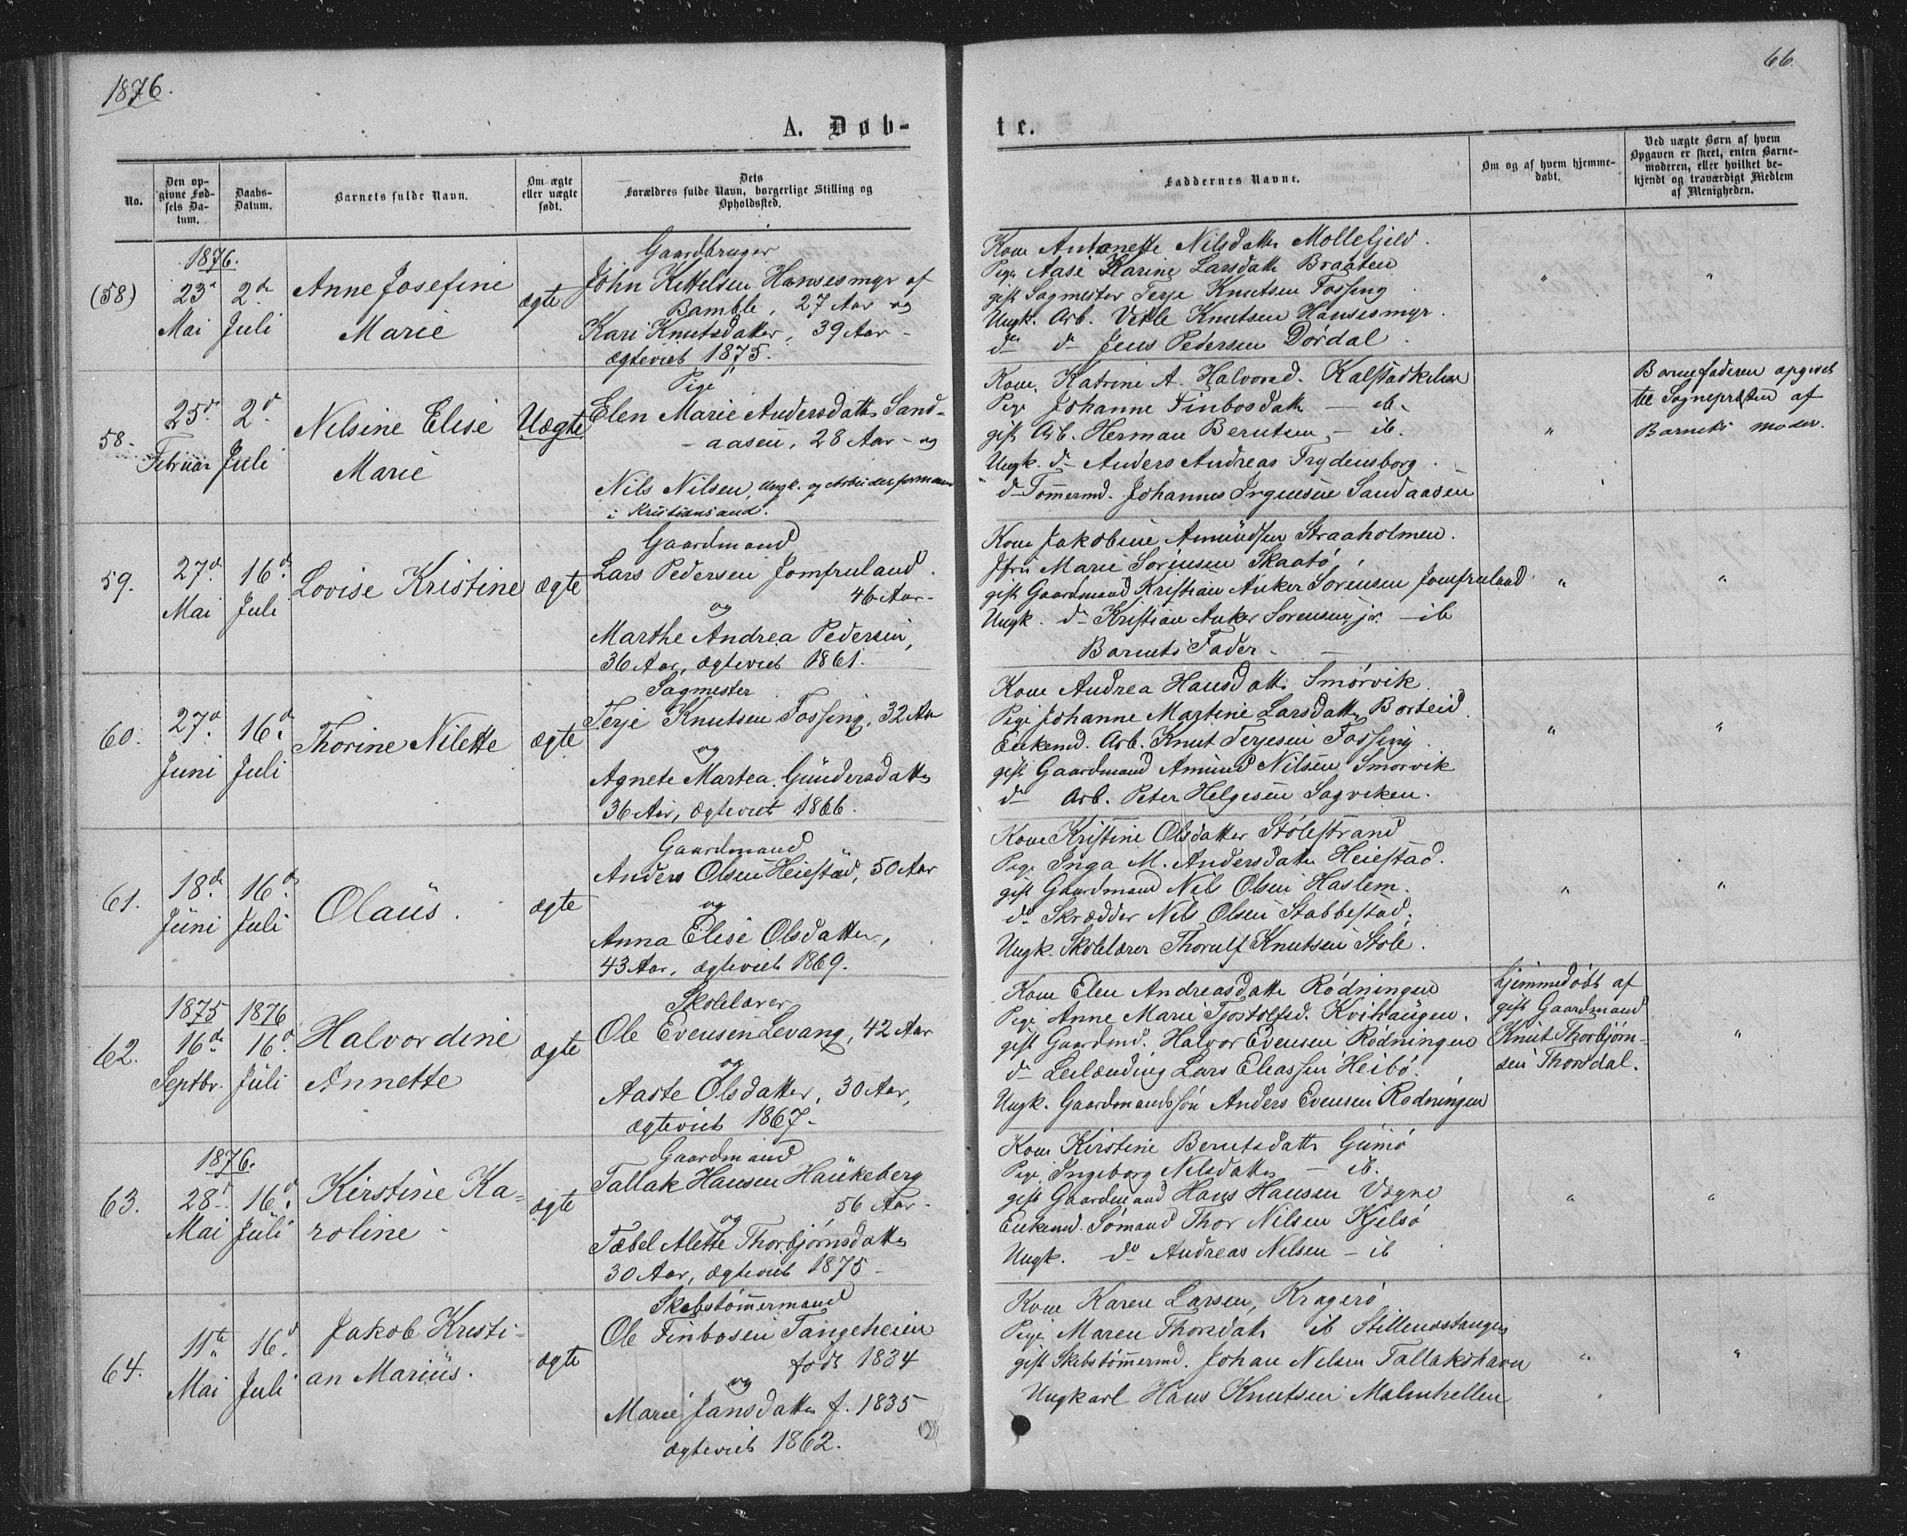 1876.
66.
A. Døb-
te.
No.
Den op-
givne Fød-
sels Da-
tum.
Daabs-
Datum.
Barnets fulde Navn.
Om ægte
eller uægte
født.
Dets
Forældres fulde Navn, borgerlige Stilling og
Opholdssted.
Faddernes Navne.
Om og af hvem hjemme-
døbt.
Ved uægte Børn af hvem
Opgaven er skeet, enten Barne-
moderen, eller hvilket be-
kjendt og troværdigt Medlem
af Menigheden.
1876.
(58)
23d
Mai
2d
Juli
Anne Josefine
Marie
ægte
Gaardbruger
John Kittelsen Hansesmyr af
Bamble, 27 Aar og
Kari Knutsdatter, 39 Aar -
ægteviet 1875.
Kone Antonette Nilsdatt. Mollefjeld.
Pige Aase Karine Larsdatt Braaten
gift Sagmester Terje Knutsen Fossing
Ungk. Arb. Vetle Knutsen Hansesmyr.
do do Jens Pedersen Dørdal.
"
"
58.
25d
Februar
2d
Juli
Nilsine Elise
Marie
Uægte
Pige
Elen Marie Andersdatt. Sand-
- aasen, 28 Aar - og
Nils Nilsen, Ungk. og Arbeidsformand
i Kristiansand.
Kone, Katrine A. Halvorsd. Kalstadkilen
Pige Johanne Finbosdatt - ib.
gift Arb. Herman Berntsen - ib.
Ungk. do Anders Andreas Frydensborg.
do Tømmermd. Johannes Sandaasen
"
Barnefaderen opgivet
til Sognepræsten af
Barnets moder.
59.
27d
Mai
16d
Juli
Lovise Kristine
ægte
Gaardmand
Lars Pedersen Jomfruland.
46 Aar -
og
Marthe Andrea Pedersen,
36 Aar, ægteviet 1861.
Kone Jakobine Amundsen Straaholmen.
Jfru Marie Sørensen Skaatø,
gift Gaardmand Kristian Anker Sørensen Jomfruland
Ungk. do Kristian Anker Sørensen jr. - ib
Barnets Fader -
"
"
60.
27d
Juni
16d
Juli
Thorine Nilette
ægte
Sagmester
Terje Knutsen Fossing, 32 Aar
og
Agnete Martea Gundersdatt.
36 Aar, ægteviet 1866.
Kone Andrea Hansdatt. Smørvik
Pige Johanne Martine Larsdatt. Borteid
Enkemd. Arb. Knut Terjesen Fossing
gift Gaardmand Amund Nilsen Smørvik
do Arb. Peter Helgesen Sagviken.
"
"
61.
18d
Juni
16d
Juli
Olaus.
ægte
Gaardmand
Anders Olsen Heiestad, 50 Aar
og
Anna Elise Olsdatter,
43 Aar, ægteviet 1869.
Kone Kristine Olsdatter Stølestrand
Pige Inga M. Andersdatt. Heiestad.
gift Gaardmand Nils Olsen Haslem.
do Skrædder Nils Olsen Stabbestad.
Ungk. Skolelærer Thorulf Knutsen Støle.
"
"
62.
1875
16de
Septbr.
1876
16d
Juli
Halvordine
Annette
ægte
Skolelærer
Ole Evensen Levang, 42 Aar
og
Aaste Olsdatter, 30 Aar,
ægteviet 1867 -
Kone Elen Andreasdatt. Rødningen
Pige Anne Marie Tjostolfsd. Kvihaugen.
gift Gaardmd. Halvor Evensen Rødningen
do Leilænding Lars Eliassen Heibø.
Ungk. Gaardmandssøn Anders Evensen Rødningen
hjemmedøbt af
gift Gaardmand
Knut Thorbjørn-
sen Thorsdal.
"
63.
1876.
28d
Mai
16d
Juli
Kirstine Ka-
roline -
ægte
Gaardmand
Tallak Hansen Haukeberg
56 Aar -
og
Tæbel Alette Thorbjørnsdatt.
30 Aar, ægteviet 1875 -
Kone Kirstine Berntsdatt. Gumø
Pige Ingeborg Nilsdatter - ib.
gift Gaardmand Hans Hansen Vogne
Enkemd. Sømand Thor Nilsen Kjelsø
Ungk. do Andreas Nilsen - ib
"
"
64.
11te
Mai
16d
Juli
Jakob Kristi-
an Marius.
ægte
Skibstømmermand
Ole Finbosen Tangeheien
født 1834
og
Marie Jansdatter f. 1835
ægteviet 1862.
Kone Karen Larsen, Kragerø
Pige Maren Thorsdatt. ib
gift Skibstømmermd. Johan Nilsen Tallakshavn
Ungkarl Hans Knutsen Malmhellen
"
"